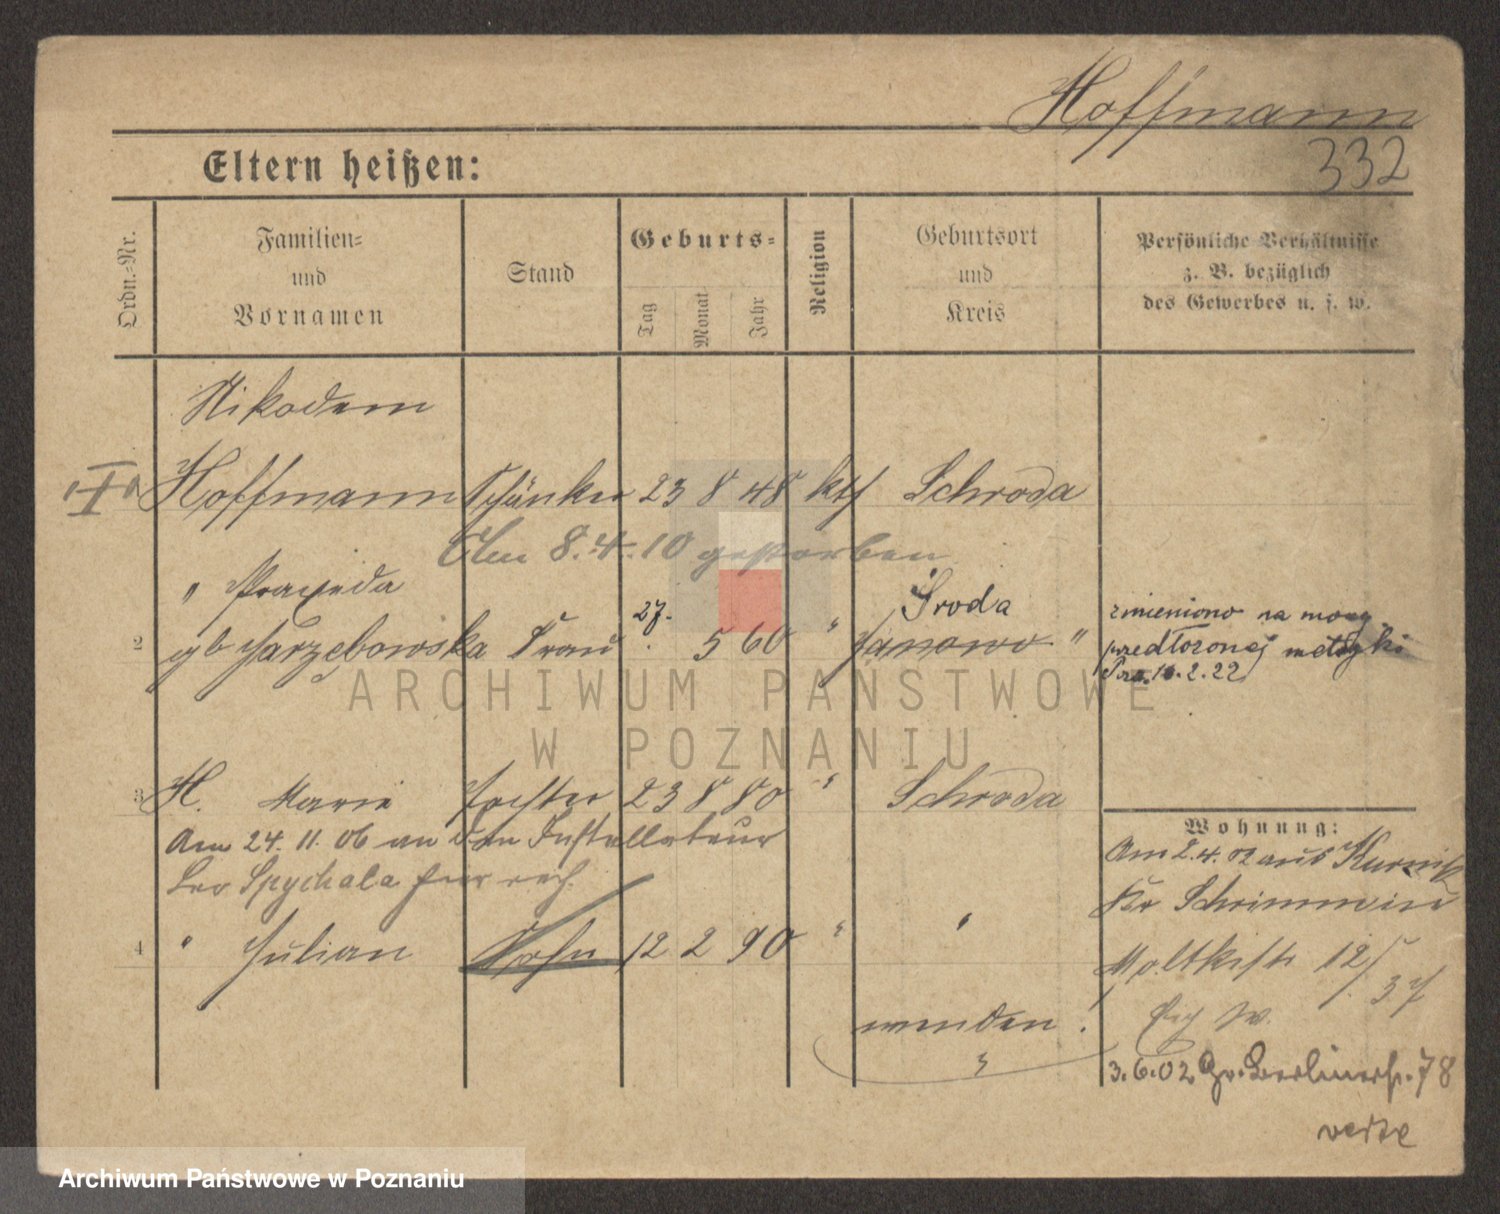 Hoffmann
332
Eltern heißen:
Ordn.-Nr.
Familien-
und
Vornamen
Stand
Geburts-
Tag
Monat
Jahr
Religion
Geburtsort
und
Kreis
Persönliche Verhältnisse
z. B. bezüglich
des Gewerbes u. s. w.
Nikodem
I Hoffmann Schänker 23 8 48 kth Schroda
Am 8.4.10 gestorben
" Praxeda
2 gb Jarzebowska Frau 27. 5 60 " Janowo "
Środa
zmieniono na mocy
przedłożonej metryki
10.2.22
3 H. Marie Tochter 23 8 80 " Schroda
Am 24.11.06 an den Installateur
Leo Spychala
4 " Julian Sohn 12 2 90 " "
wenden!
Wohnung:
Am 2.4.02 aus Kurnik
Kr Schrimm
Moltkestr 12/
37
3.6.02 Gr. Berlinerstr. 78
verte
ARCHIWUM PAŃSTWOWE
W POZNANIU
Archiwum Państwowe w Poznaniu